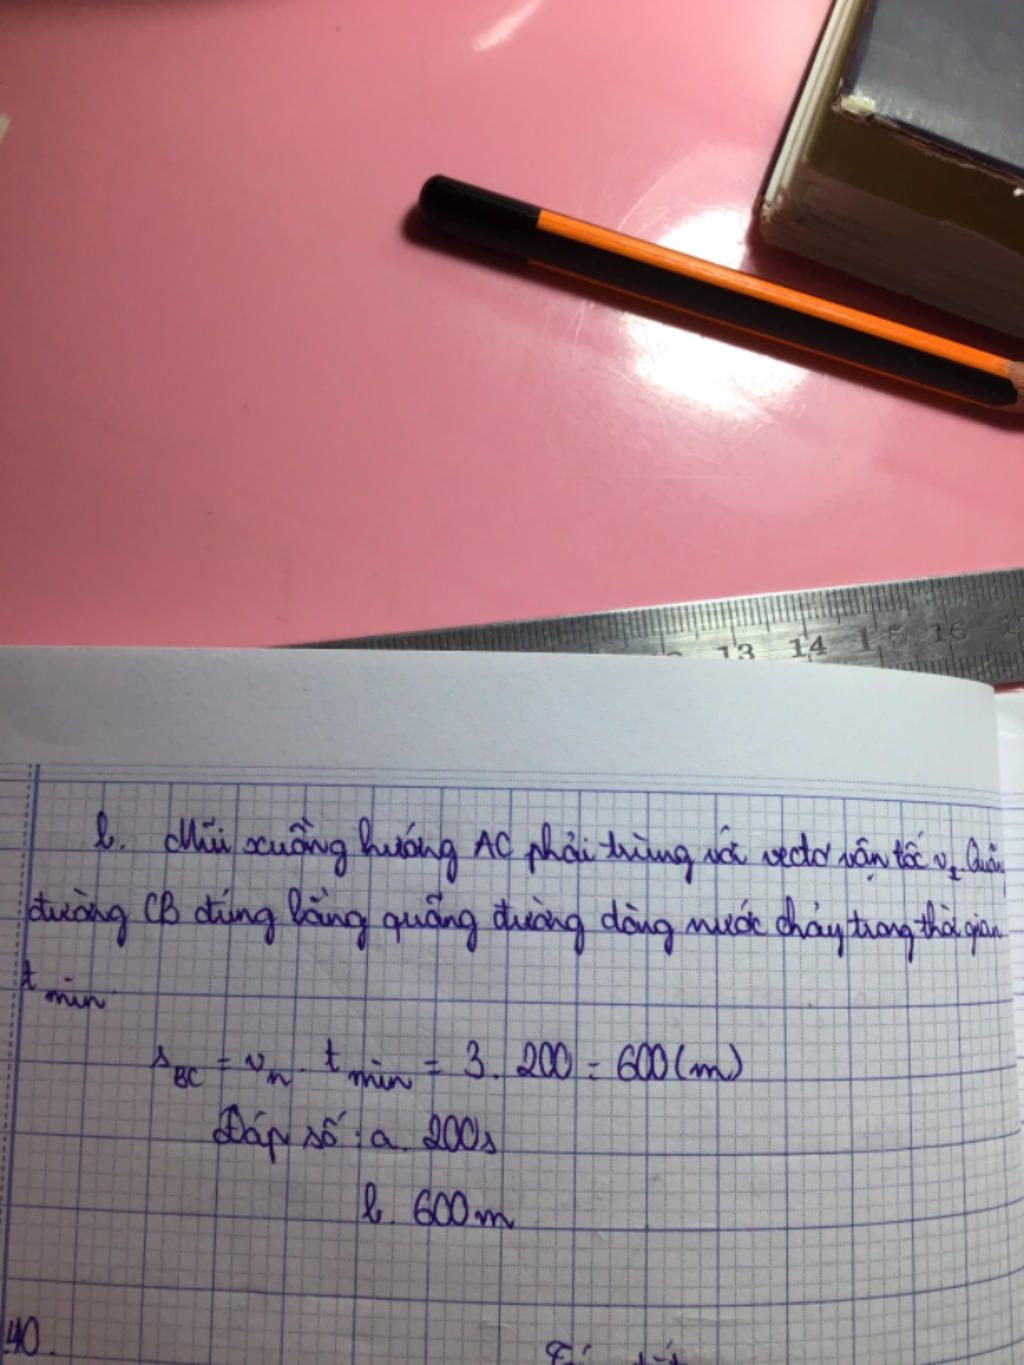 13 14 15 16
b. Mũi xuồng hướng AC phải trùng với vectơ vận tốc v₁. Quãng
đường CB đúng bằng quãng đường dòng nước chảy trong thời gian
t min.
s BC = vn . t min = 3 . 200 = 600 (m)
Đáp số : a. 200s
b. 600m
40.